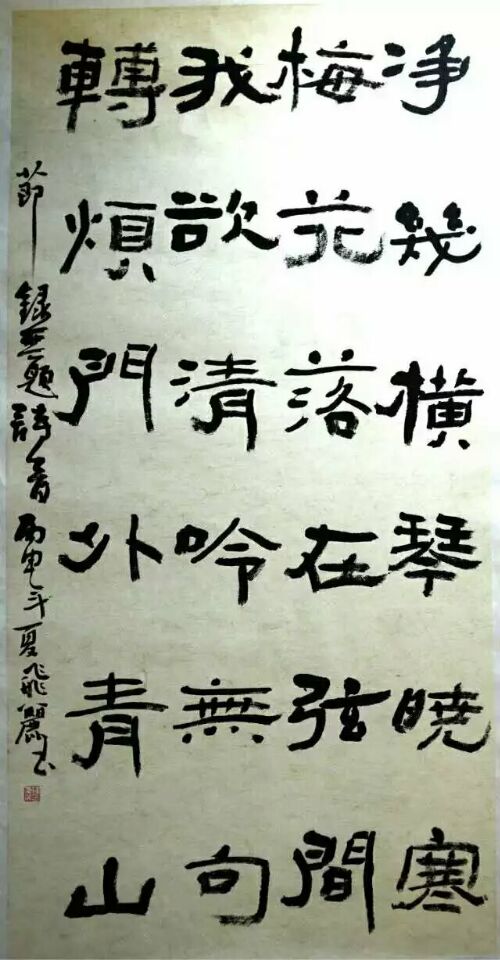 净幾橫琴曉寒
梅花落在弦間
我欲清吟無句
轉煩門外青山
節録无題詩首丙申夏飛麗书